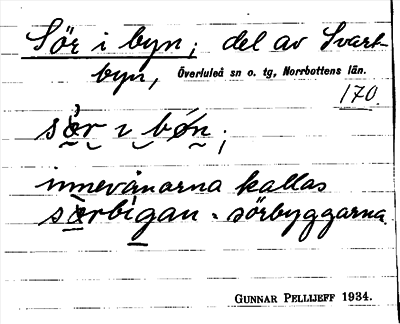 Sör i byn; del av Svart-
byn, Överluleå sn o. tg, Norrbottens län.
170.
sør ı bøn;
innevånarna kallas
sørbigan = sörbyggarna.
GUNNAR PELLIJEFF 1934.